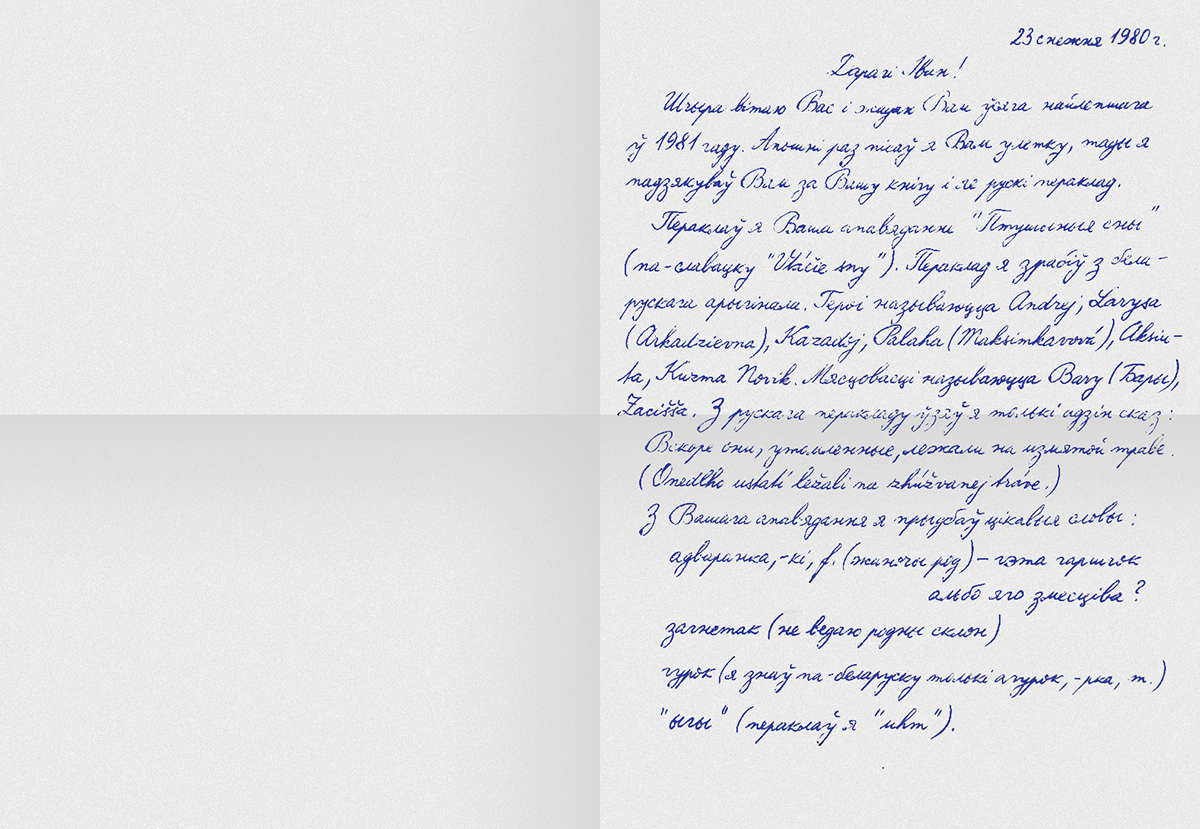 23 снежня 1980 г.
Дарагі Іван!
Шчыра вітаю Вас і жадаю Вам ўсяго найлепшага
ў 1981 гаду. Апошні раз пісаў я Вам улетку, тады я
падзякуваў Вам за Вашу кнігу і яе рускі пераклад.
Пераклаў я Ваша апавяданне "Птушыныя сны"
(па-славацку "Vtáčie sny"). Пераклад я зрабіў з бела-
рускага арыгінала. Героі называюцца Andrej, Larysa
(Arkadzievna), Kazadoj, Palaha (Maksimkavová), Aksiu-
ta, Kuzma Novik. Мясцовасці называюцца Bary (Бары),
Zacišša. З рускага перакладу ўзяў я толькі адзін сказ:
Вскоре они, утомленные, лежали на измятой траве.
(Onedlho ustatí ležali na zhúžvanej tráve.)
З Вашага апавядання я прыдбаў цікавыя словы:
адваранка, -кі, f. (жаночы род) – гэта гаршчок
альбо яго змесціва?
загнетак (не ведаю родны склон)
гурок (я знаў па-беларуску толькі агурок, -рка, m.)
"ыгы" (пераклаў я "uhm").